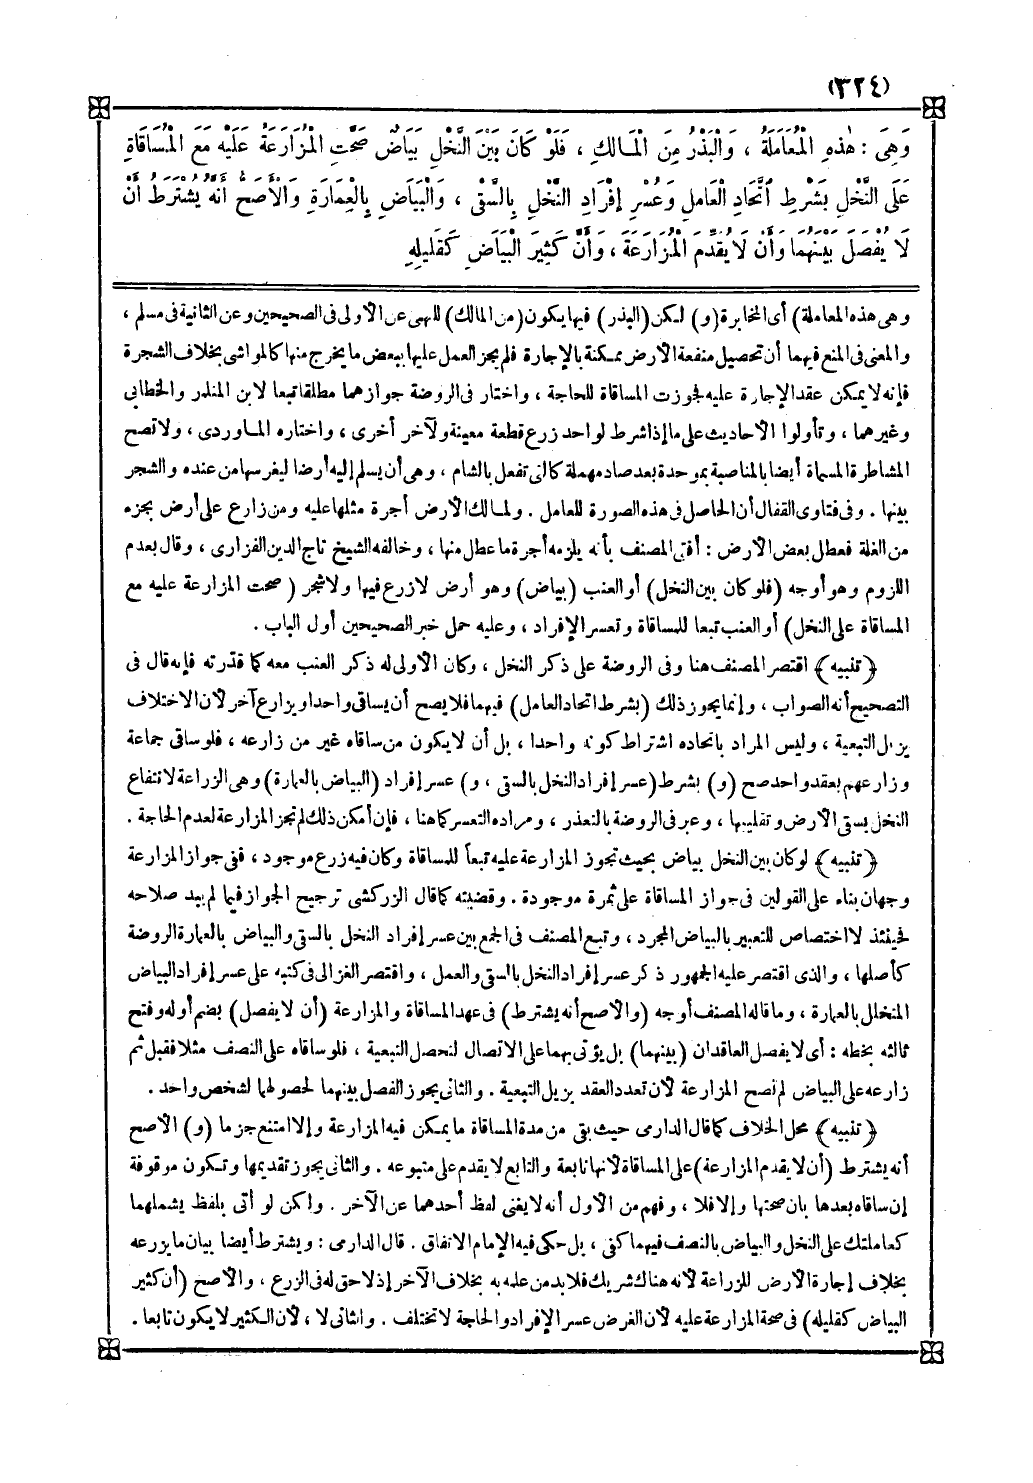 (٣٢٤)
وَهِيَ : هٰذِهِ الْمُعَامَلَةُ ، وَالْبَذْرُ مِنَ الْمَالِكِ ، فَلَوْ كَانَ بَيْنَ النَّخْلِ بَيَاضٌ صَحَّتِ الْمُزَارَعَةُ عَلَيْهِ مَعَ الْمُسَاقَاةِ
عَلَى النَّخْلِ بِشَرْطِ اتِّحَادِ الْعَامِلِ وَعُسْرِ إِفْرَادِ النَّخْلِ بِالسَّقْيِ ، وَالْبَيَاضِ بِالْعِمَارَةِ وَالْأَصَحُّ أَنَّهُ يُشْتَرَطُ أَنْ
لَا يُفْصَلَ بَيْنَهُمَا وَأَنْ لَا يُقَدِّمَ الْمُزَارَعَةَ ، وَأَنَّ كَثِيرَ الْبَيَاضِ كَقَلِيلِهِ
وهى هذه المعاملة) أى المخابرة (و) لكن (البذر) فيها يكون (من المالك) للنهى عن الأولى فى الصحيحين وعن الثانية فى مسلم ،
والمعنى فى المنع فيهما أن تحصيل منفعة الأرض ممكنة بالإجارة فلم يجز العمل عليها ببعض ما يخرج منها كالمواشى بخلاف الشجرة
فإنه لا يمكن عقد الإجارة عليه فجوزت المساقاة للحاجة ، واختار فى الروضة جوازهما مطلقا تبعا لابن المنذر والخطابى
وغيرهما ، وتأولوا الأحاديث على ما إذا شرط لواحد زرع قطعة معينة ولآخر أخرى ، واختاره الماوردى ، ولا تصح
المشاطرة المسماة أيضا بالمناصبة بموحدة بعد صاد مهملة كالتى تفعل بالشام ، وهى أن يسلم إليه أرضا ليغرسها من عنده والشجر
بينها . وفى فتاوى القفال أن الحاصل فى هذه الصورة للعامل . ولمالك الأرض أجرة مثلها عليه ومن زارع على أرض بجزء
من الغلة فعطل بعض الأرض : أفتى المصنف بأنه يلزمه أجرة ما عطل منها ، وخالفه الشيخ تاج الدين الفزارى ، وقال بعدم
اللزوم وهو أوجه (فلو كان بين النخل) أو العنب (بياض) وهو أرض لا زرع فيها ولا شجر ( صحت المزارعة عليه مع
المساقاة على النخل) أو العنب تبعا للمساقاة وتعسر الإفراد ، وعليه حمل خبر الصحيحين أول الباب .
﴿ تنبيه ﴾ اقتصر المصنف هنا وفى الروضة على ذكر النخل ، وكان الأولى له ذكر العنب معه كما قدرته فإنه قال فى
التصحيح أنه الصواب ، وإنما يجوز ذلك (بشرط اتحاد العامل) فيهما فلا يصح أن يساقى واحدا ويزارع آخر لأن الاختلاف
يزيل التبعية ، وليس المراد باتحاده اشتراط كونه واحدا ، بل أن لا يكون من ساقاه غير من زارعه ، فلو ساقى جماعة
وزارعهم بعقد واحد صح (و) بشرط (عسر إفراد النخل بالسقى ، و) عسر إفراد (البياض بالعمارة) وهى الزراعة لانتفاع
النخل بسقى الأرض وتقليبها ، وعبر فى الروضة بالتعذر ، ومراده التعسر كما هنا ، فإن أمكن ذلك لم تجز المزارعة لعدم الحاجة .
﴿ تنبيه ﴾ لو كان بين النخل بياض بحيث تجوز المزارعة عليه تبعاً للمساقاة وكان فيه زرع موجود ، ففى جواز المزارعة
وجهان بناء على القولين فى جواز المساقاة على ثمرة موجودة . وقضيته كما قال الزركشى ترجيح الجواز فيما لم يبد صلاحه
فحينئذ لا اختصاص للتعبير بالبياض المجرد ، وتبع المصنف فى الجمع بين عسر إفراد النخل بالسقى والبياض بالعمارة الروضة
كأصلها ، والذى اقتصر عليه الجمهور ذكر عسر إفراد النخل بالسقى والعمل ، واقتصر الغزالى فى كتبه على عسر إفراد البياض
المتخلل بالعمارة ، وما قاله المصنف أوجه (والأصح أنه يشترط) فى عهد المساقاة والمزارعة (أن لا يفصل) بضم أوله وفتح
ثالثه بخطه : أى لا يفصل العاقدان (بينهما) بل يؤتى بهما على الاتصال لتحصل التبعية ، فلو ساقاه على النصف مثلا فقبل ثم
زارعه على البياض لم تصح المزارعة لأن تعدد العقد يزيل التبعية . والثانى يجوز الفصل بينهما لحصولهما لشخص واحد .
﴿ تنبيه ﴾ محل الخلاف كما قال الدارمى حيث بقى من مدة المساقاة ما يمكن فيه المزارعة وإلا امتنع جزما (و) الأصح
أنه يشترط (أن لا يقدم المزارعة) على المساقاة لأنها تابعة والتابع لا يقدم على متبوعه . والثانى يجوز تقديمها وتكون موقوفة
إن ساقاه بعدها بان صحتها وإلا فلا ، وفهم من الأول أنه لا يغنى لفظ أحدهما عن الآخر . ولكن لو أتى بلفظ يشملهما
كعاملتك على النخل والبياض بالنصف فيهما كفى ، بل حكى فيه الإمام الاتفاق . قال الدارمى : ويشترط أيضا بيان ما يزرعه
بخلاف إجارة الأرض للزراعة لأنه هناك شريك فلابد من علمه به بخلاف الآخر إذ لا حق له فى الزرع ، والأصح (أن كثير
البياض كقليله) فى صحة المزارعة عليه لأن الغرض عسر الإفراد والحاجة لا تختلف . والثانى لا ، لأن الكثير لا يكون تابعا .